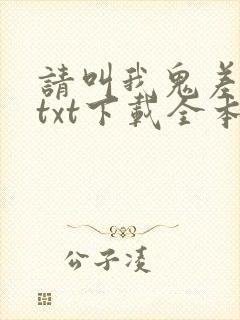 請叫我鬼差
txt下載全本
公子凌